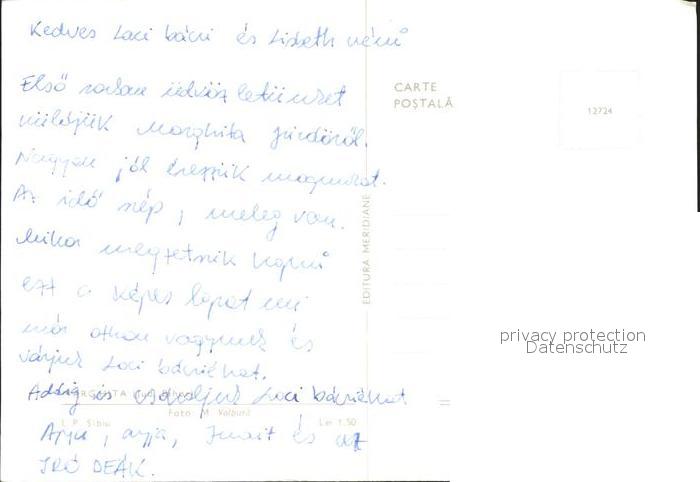 Kedves Laci bácsi és Lisbeth néni
Első sorban üdvözletünket
küldjük Marghita fürdőről.
Nagyon jól érezzük magunkat.
Az idő szép, meleg van.
Mikor megtetszik kapni
ezt a képes lapot mi
már othon vagyunk és
várjuk Laci bácsiékat.
Addig is csókoljuk Laci bácsiékat
Apju, anyja, és az
IRÓ DEÁK.
CARTE
POŞTALĂ
12724
EDITURA MERIDIANE
Foto: M. Volbură
I. P. Sibiu
Lei 1.50
privacy protection
Datenschutz